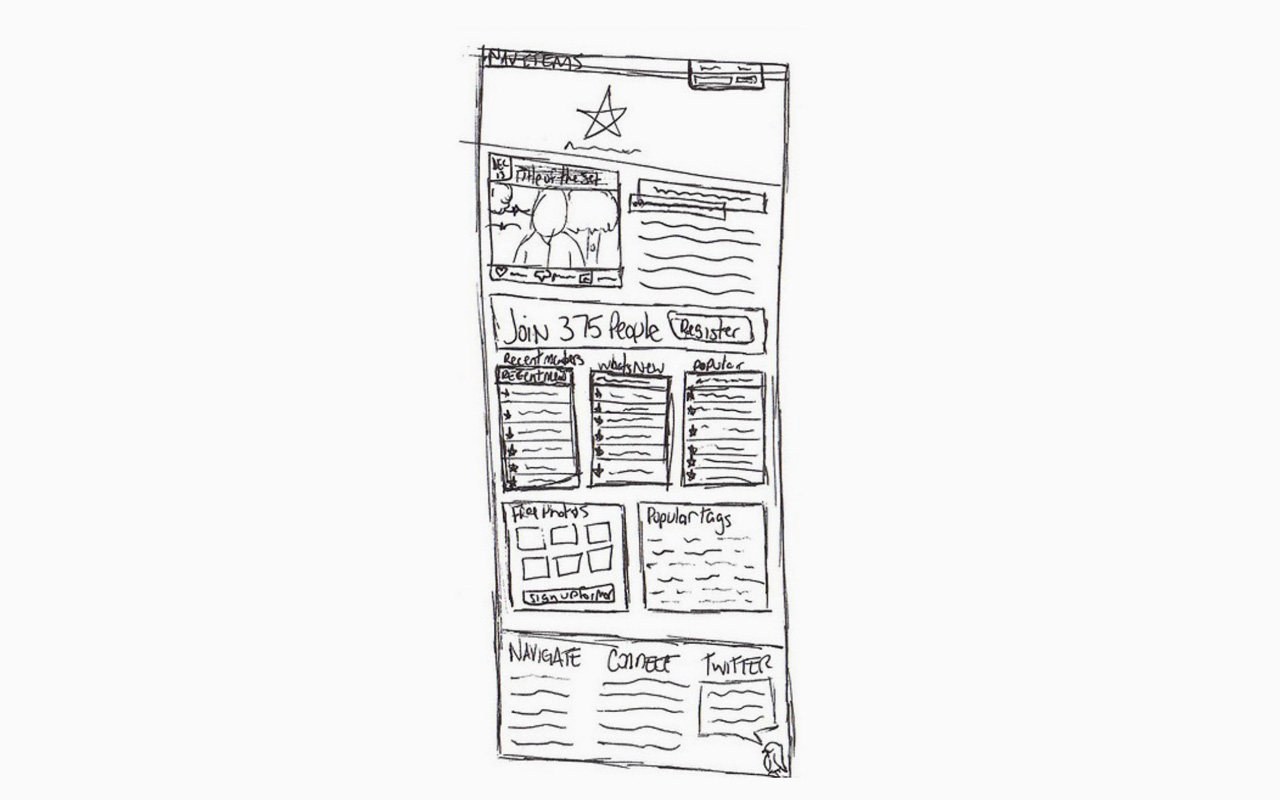 NAV ITEMS
DEC
13
Title of the Set
Join 375 People
Register
Recent members
Recent Mem
Whats New
Popular
Free Photos
sign up for mor
Popular tags
NAVIGATE
CONNECT
TWITTER